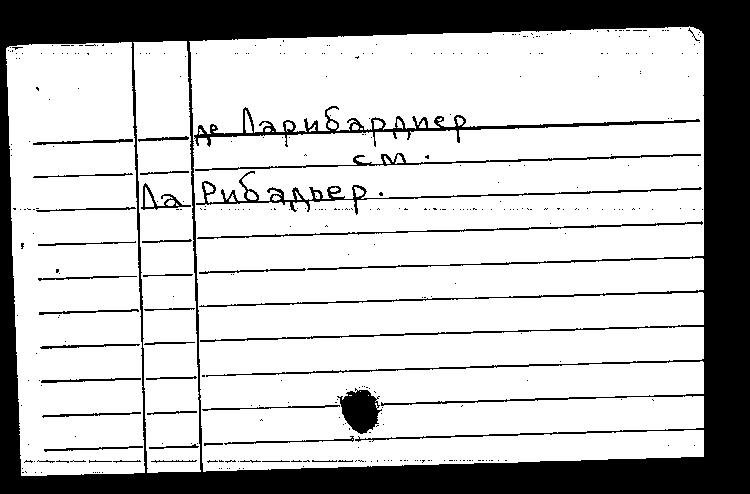 де Ларибардиер
см.
Ла Рибадьер.